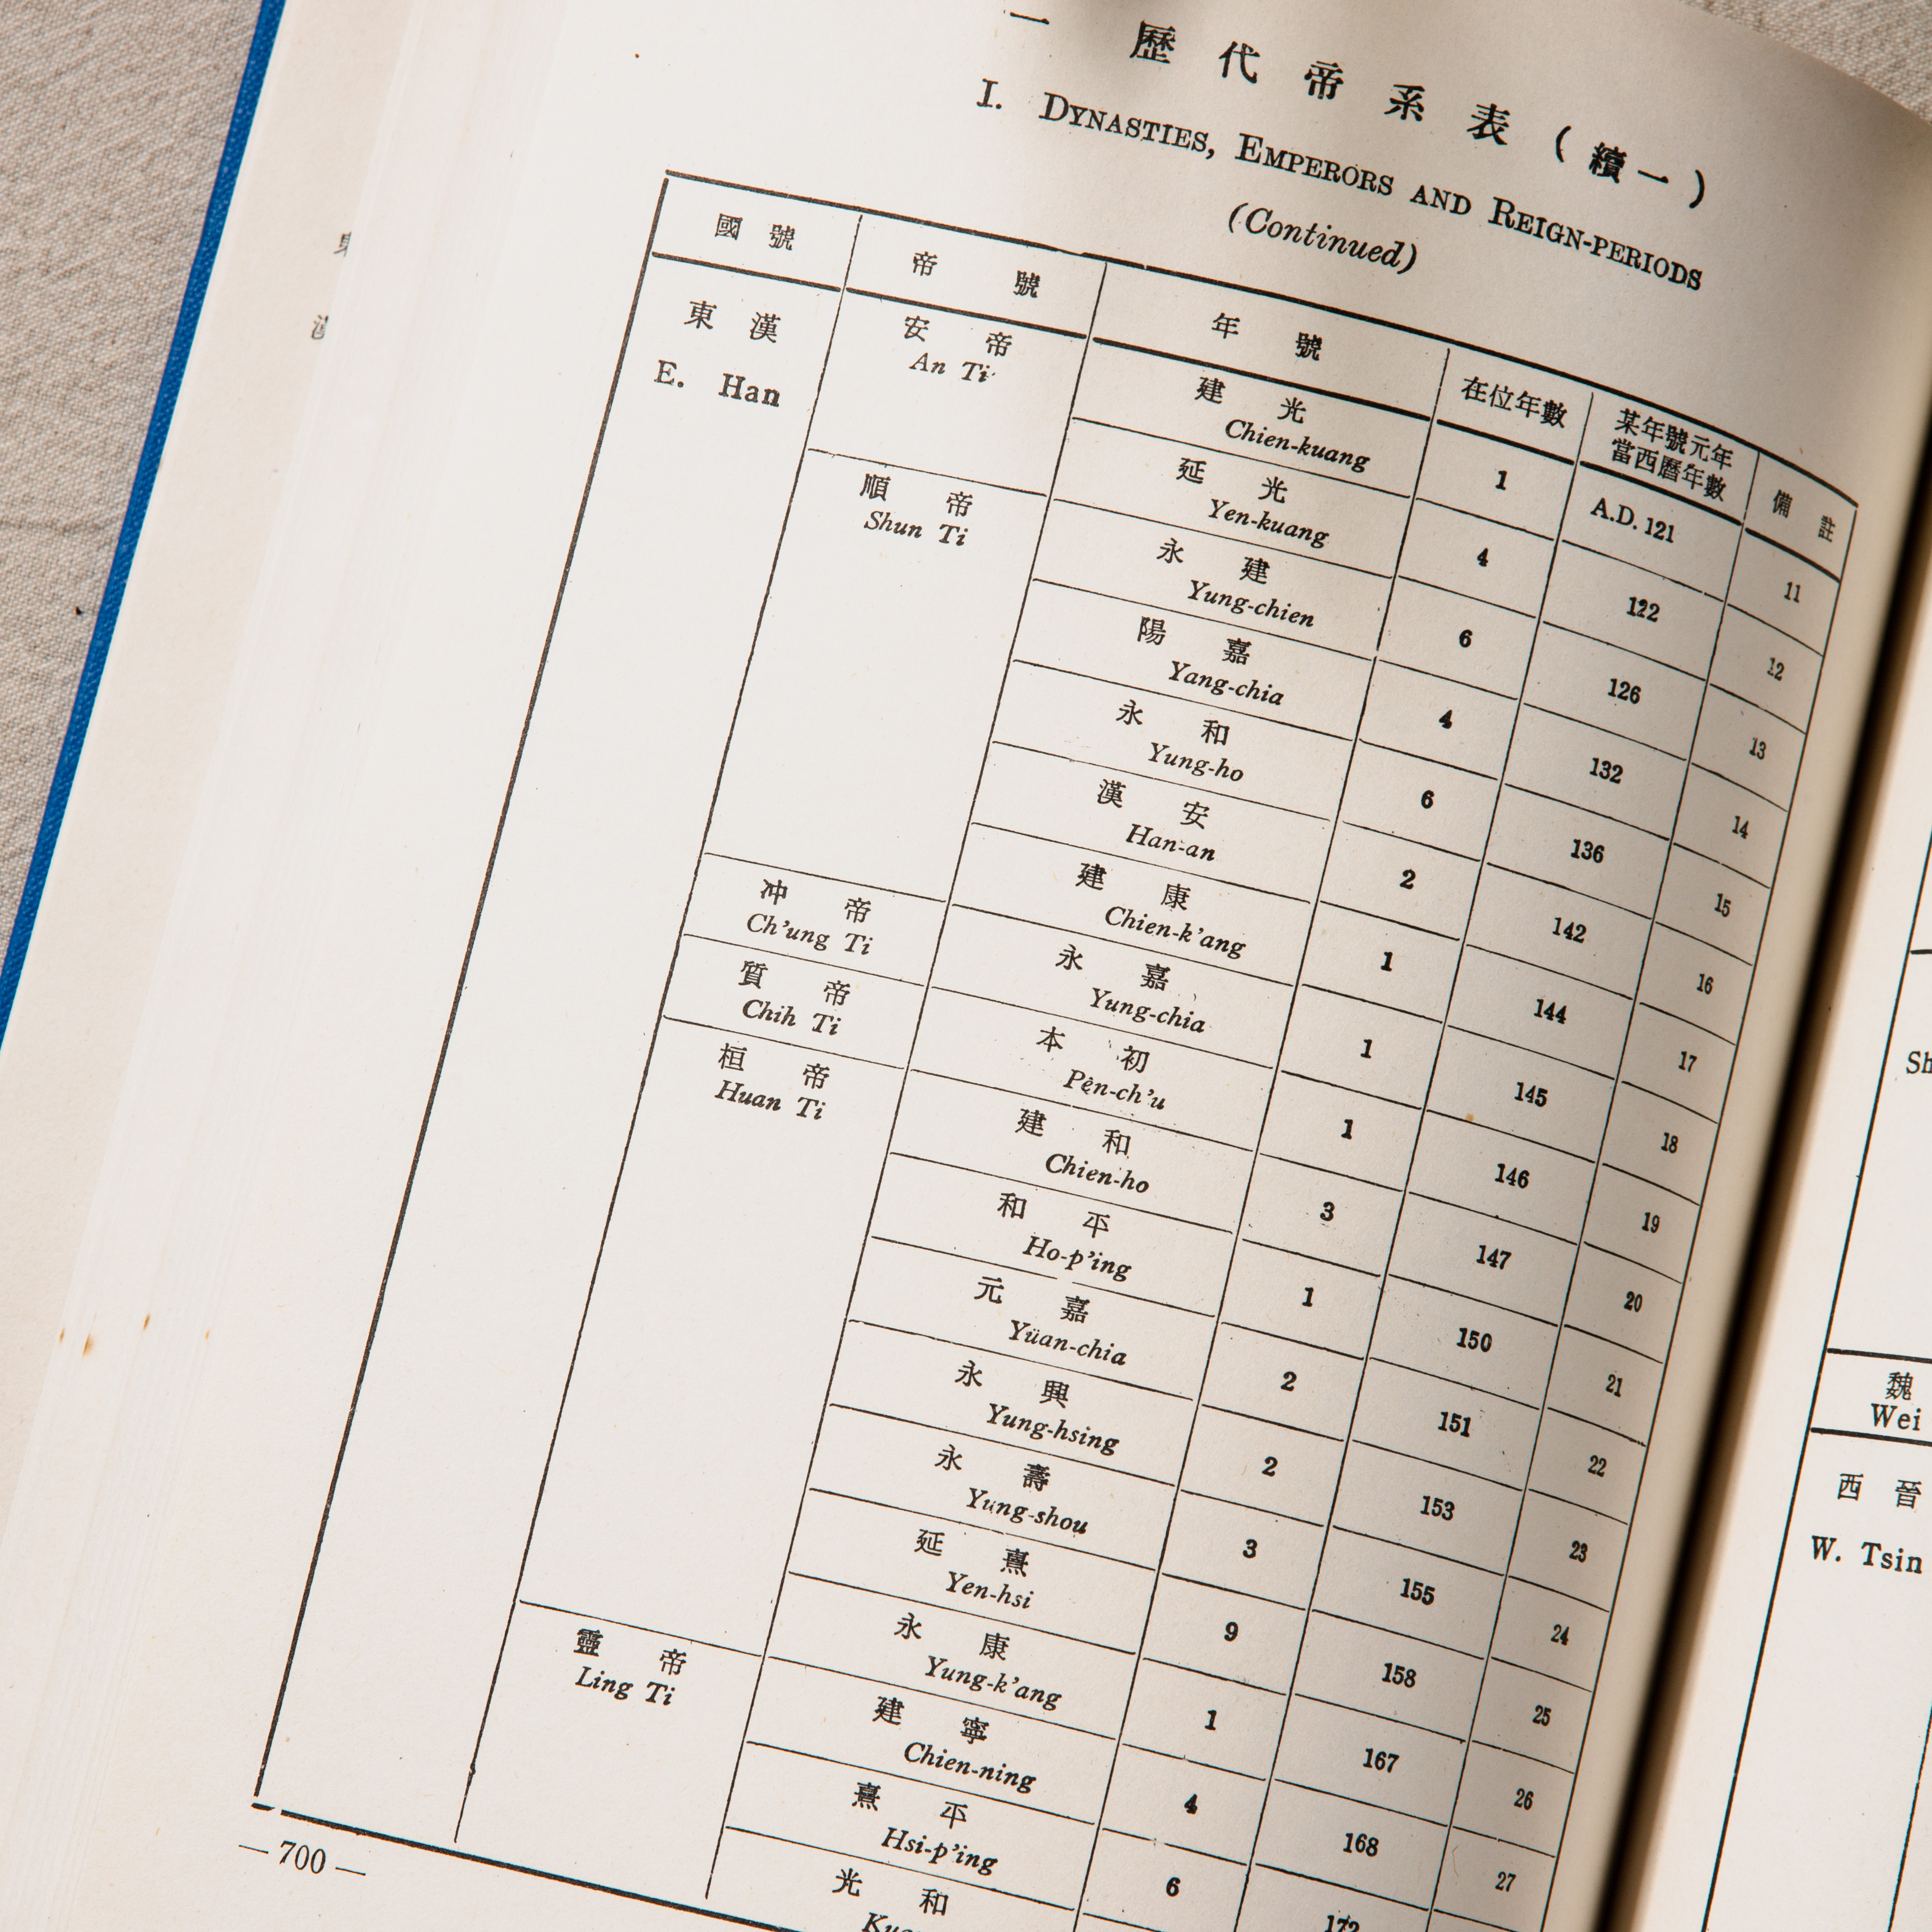 一 歷代帝系表（續一）
I. DYNASTIES, EMPERORS AND REIGN-PERIODS
(Continued)
國號 帝號 年號 在位年數 某年號元年當西曆年數 備註
東漢 安帝 建光 1 A.D. 121 11
E. Han An Ti Chien-kuang
延光 4 122 12
Yen-kuang
順帝 永建 6 126 13
Shun Ti Yung-chien
陽嘉 4 132 14
Yang-chia
永和 6 136 15
Yung-ho
漢安 2 142 16
Han-an
建康 1 144 17
Chien-k’ang
冲帝 永嘉 1 145 18
Ch’ung Ti Yung-chia
質帝 本初 1 146 19
Chih Ti Pên-ch’u
桓帝 建和 3 147 20
Huan Ti Chien-ho
和平 1 150 21
Ho-p’ing
元嘉 2 151 22
Yüan-chia
永興 2 153 23
Yung-hsing
永壽 3 155 24
Yung-shou
延熹 9 158 25
Yen-hsi
永康 1 167 26
Yung-k’ang
靈帝 建寧 4 168 27
Ling Ti Chien-ning
熹平 6 172
Hsi-p’ing
光和
— 700 —
Sh
魏
Wei
西晉
W. Tsin